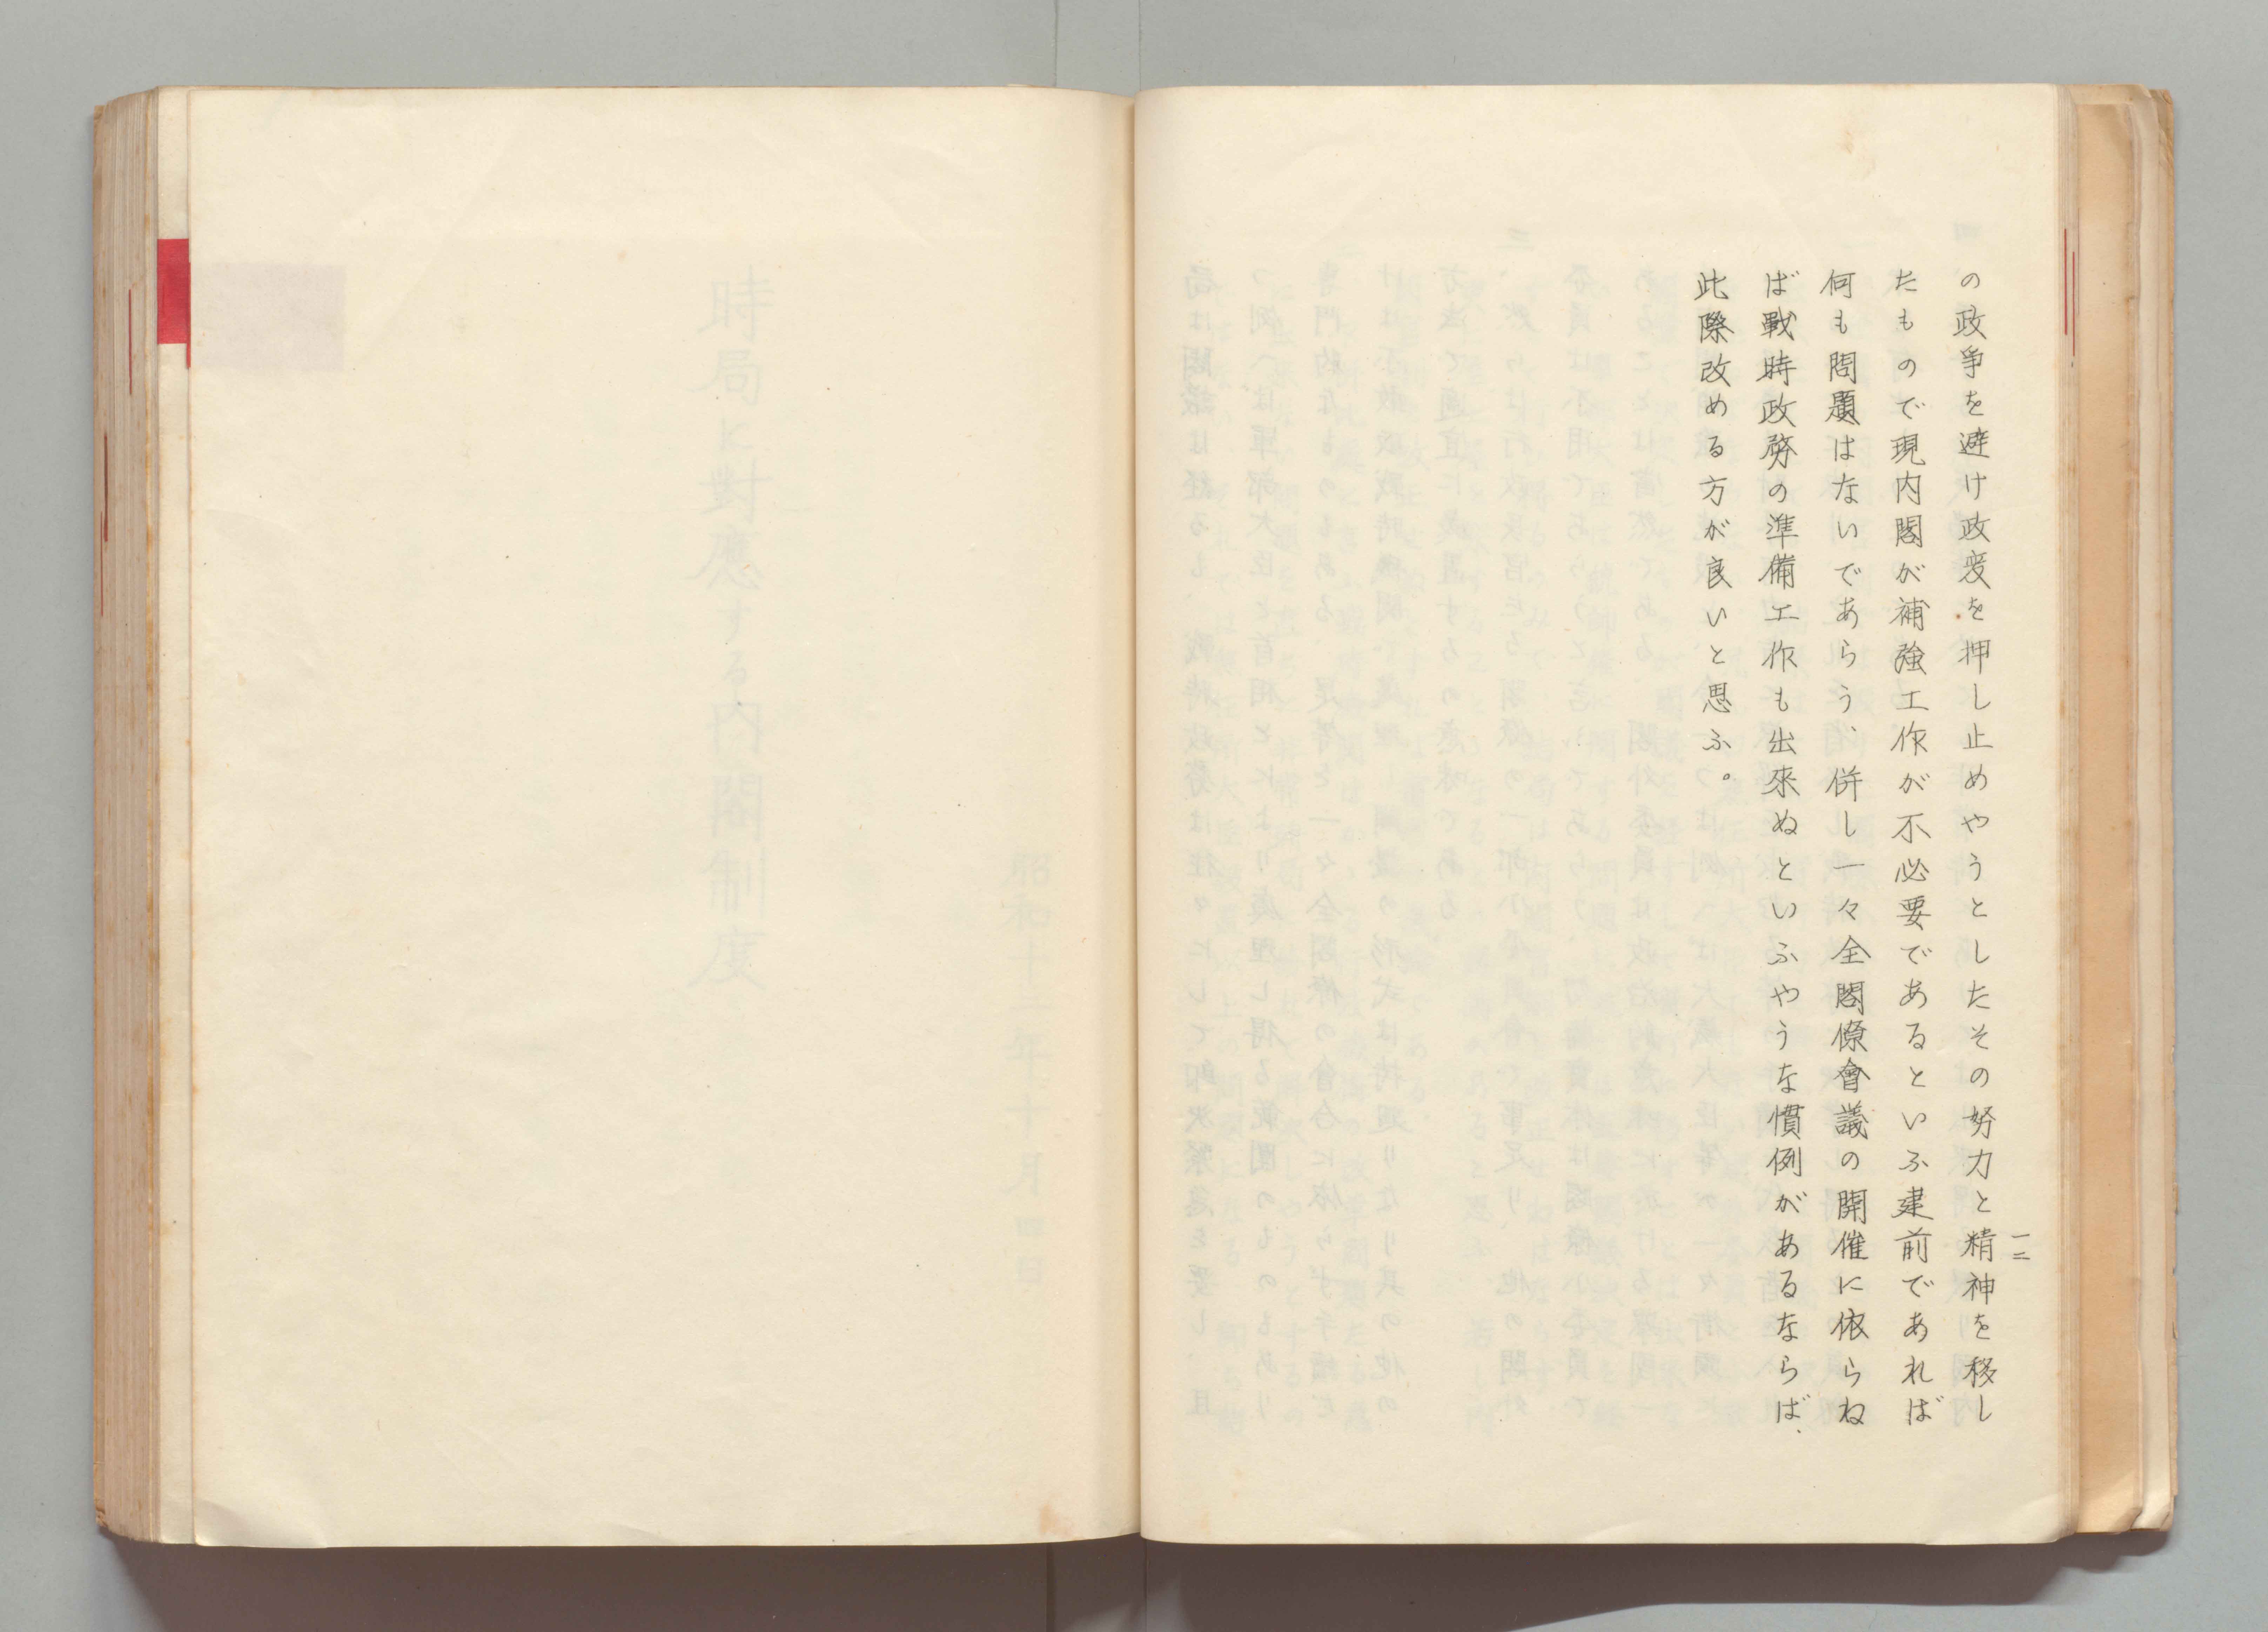 一二
の政爭を避け政変を押し止めやうとしたその努力と精神を移し
たもので現内閣が補強工作が不必要であるといふ建前であれば
何も問題はないであらう、併し一々全閣僚會議の開催に依らね
ば戰時政務の準備工作も出來ぬといふやうな慣例があるならば、
此際改める方が良いと思ふ。
時局に對應する内閣制度
昭和十二年十月四日